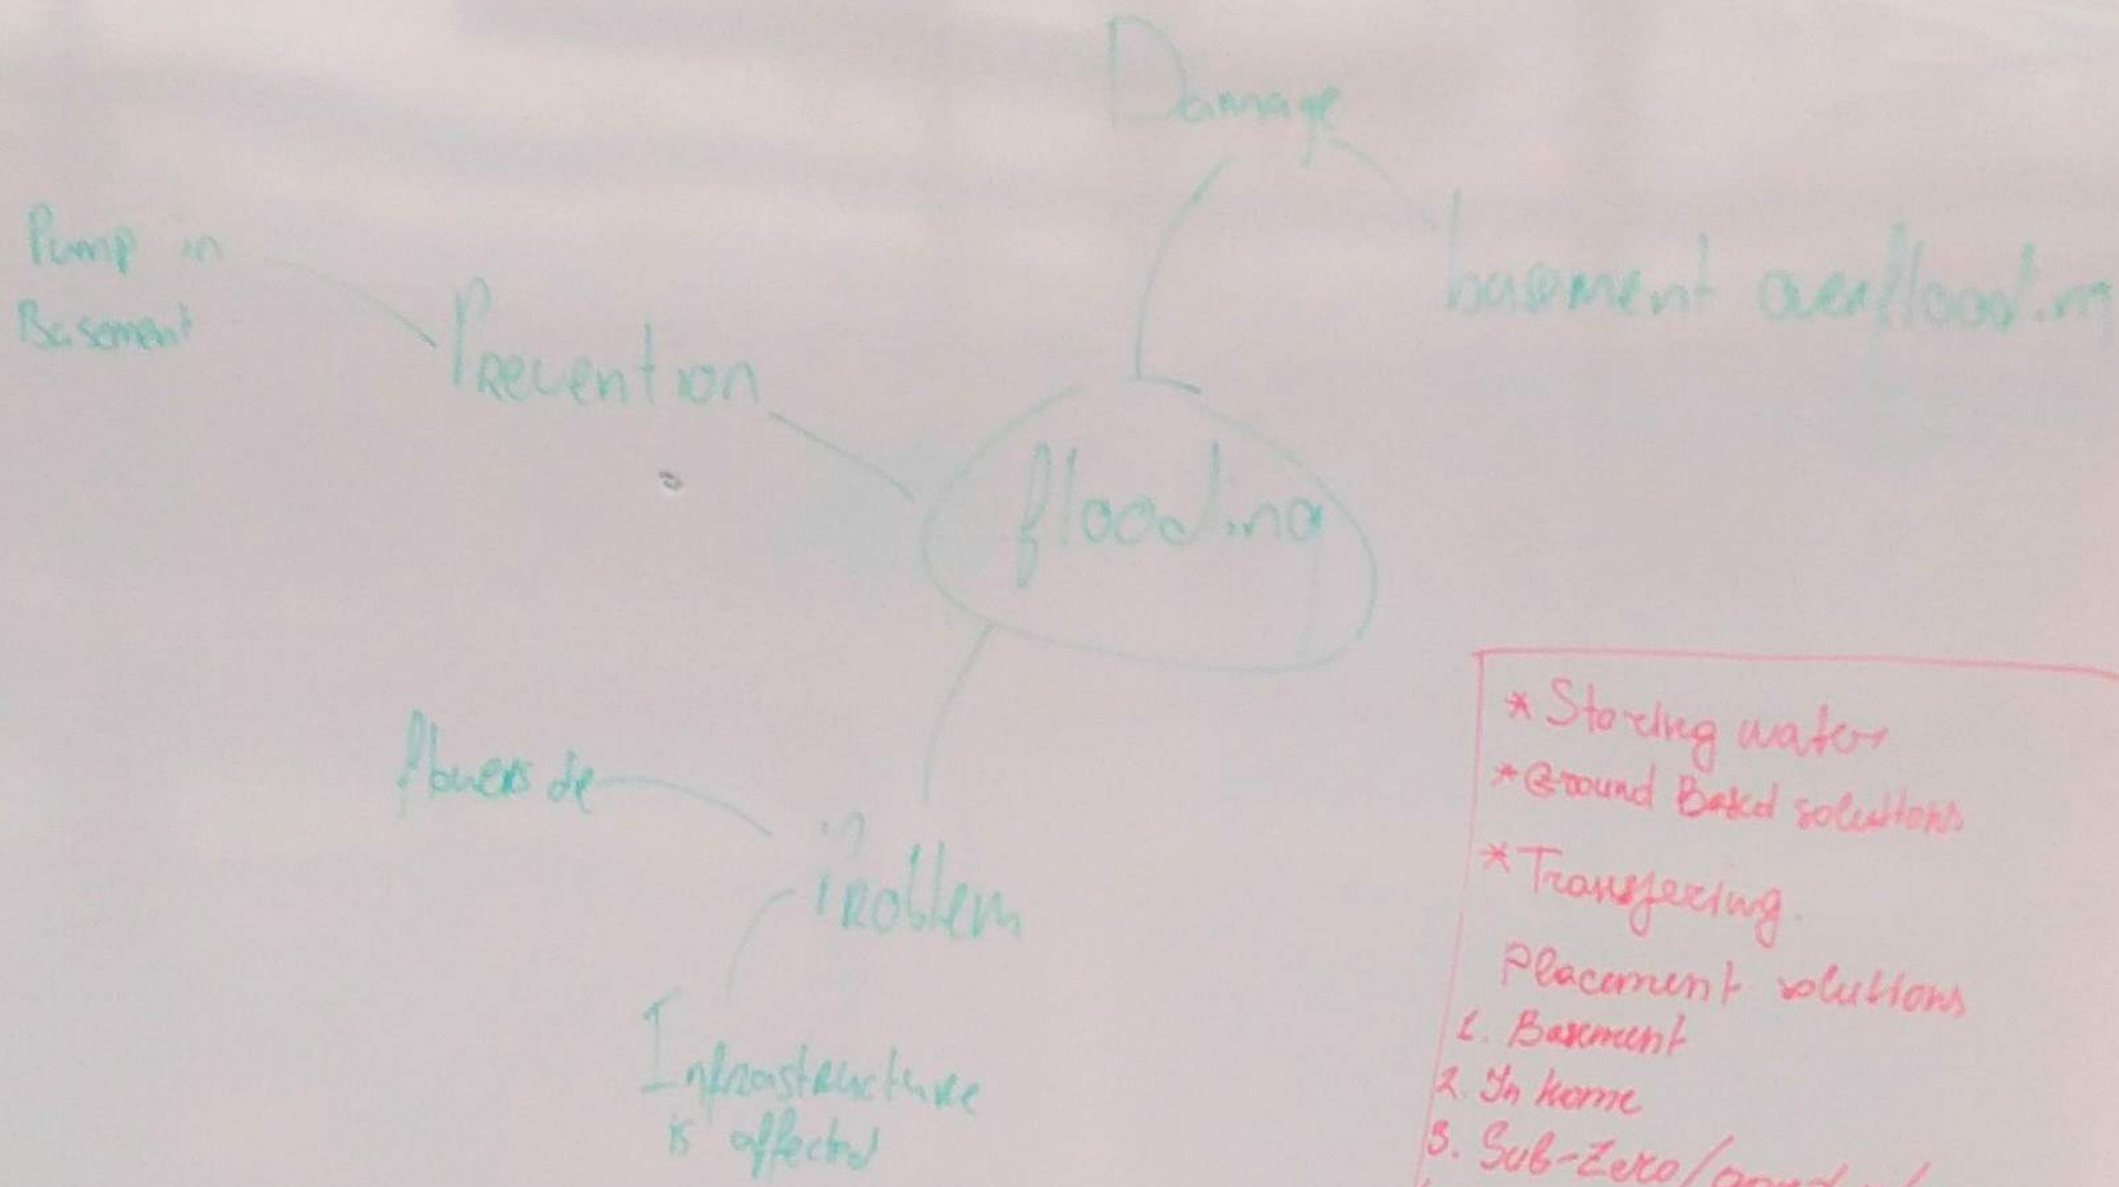 Damage
Pump in
Basement
Prevention
basement overflooding
flooding
flowers die
Problem
Infrastructure
is affected
* Storing water
* Ground Based solutions
* Transfering.
Placement solutions
1. Basement
2. In home
3. Sub-Zero/